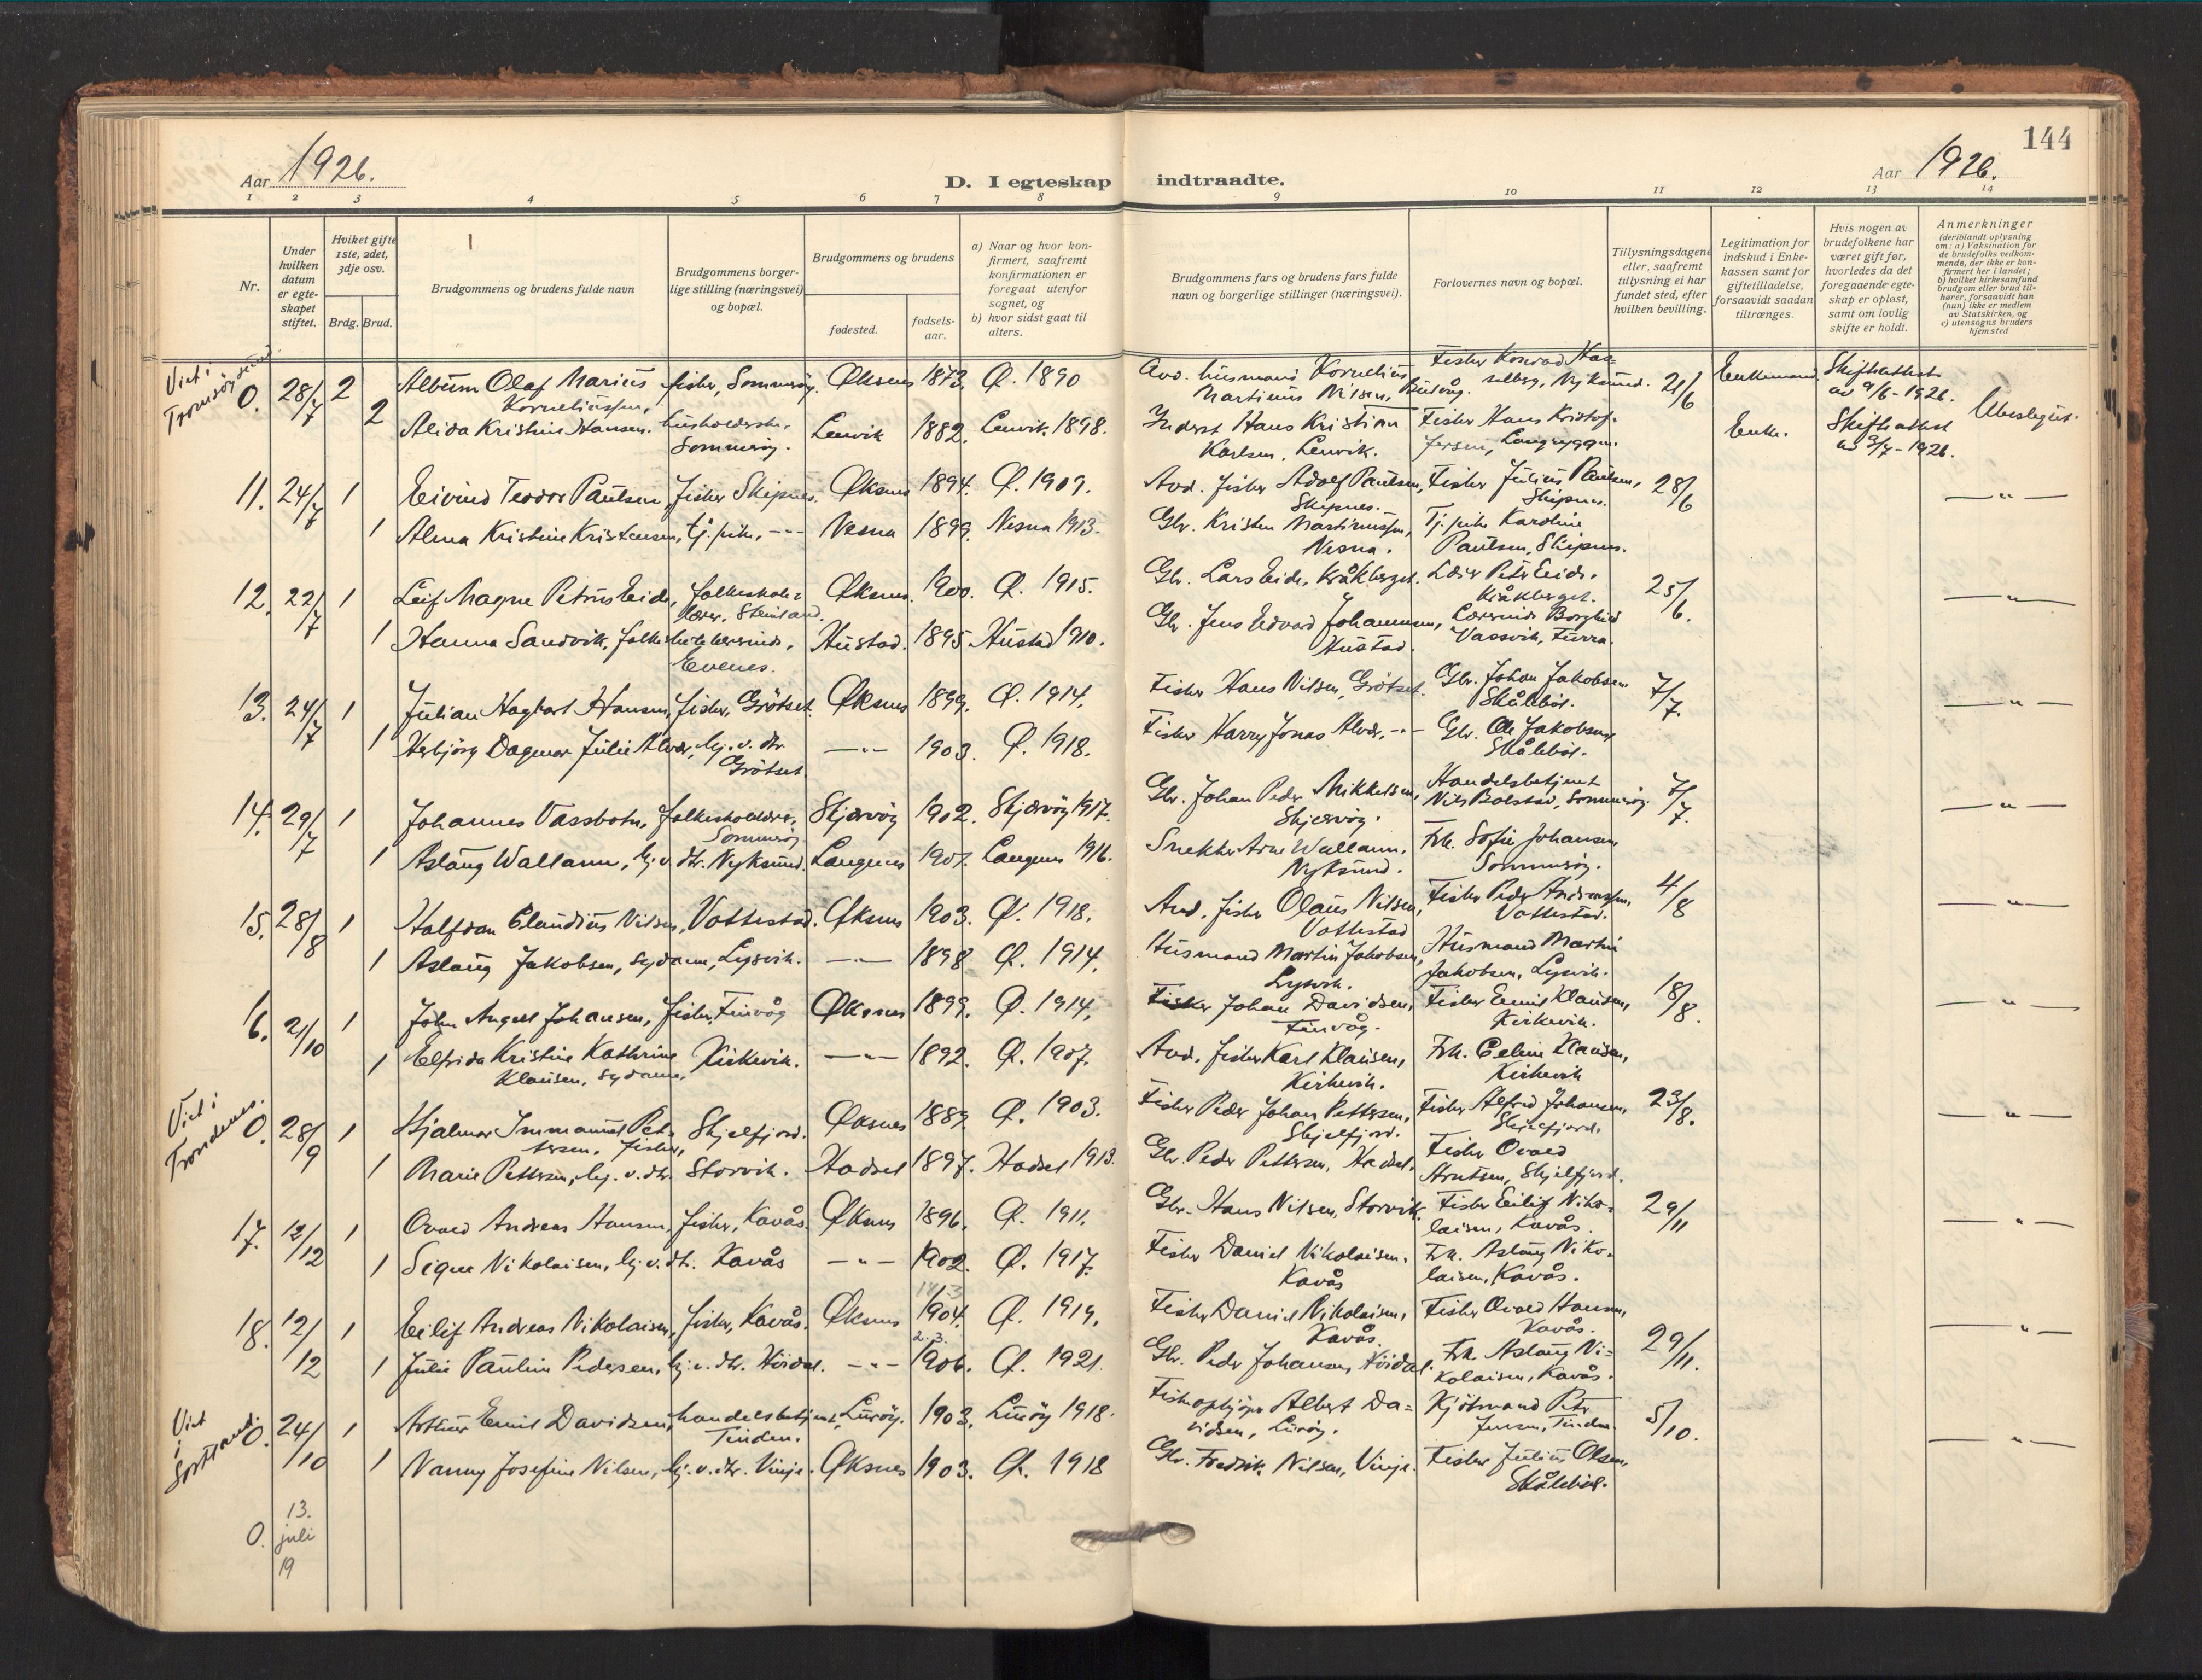 144
Aar 1926.
D. I egteskap indtraadte.
Aar 1926.
1 2 3 4 5 6 7 8 9 10 11 12 13 14
Nr.
Under hvilken datum er egteskapet stiftet.
Hvilket gifte 1ste, 2det, 3dje osv.
Brdg. Brud.
Brudgommens og brudens fulde navn
Brudgommens borgerlige stilling (næringsvei) og bopæl.
Brudgommens og brudens
fødested.
fødselsaar.
a) Naar og hvor konfirmert, saafremt konfirmationen er foregaat utenfor sognet, og
b) hvor sidst gaat til alters.
Brudgommens fars og brudens fars fulde navn og borgerlige stillinger (næringsvei).
Forlovernes navn og bopæl.
Tillysningsdagene eller, saafremt tillysning ei har fundet sted, efter hvilken bevilling.
Legitimation for indskud i Enkekassen samt for giftetilladelse, forsaavidt saadan tiltrænges.
Hvis nogen av brudefolkene har været gift før, hvorledes da det foregaaende egteskap er opløst, samt om lovlig skifte er holdt.
Anmerkninger
(deriblandt oplysning om: a) Vaksination for de brudefolks vedkommende, der ikke er konfirmert her i landet; b) hvilket kirkesamfund brudgom eller brud tilhører, forsaavidt han (hun) ikke er medlem av Statskirken, og c) utensogns bruders hjemsted
Viet i Tromsøysund
0. 28/7 2 Album Olaf Marius fisher, Sommerøy. Øksnes 1873. Ø. 1890 Avd. husmand Kornelius Fisker Konrad Has- 21/6 Enkemand Skifteattest
Korneliussen, Martinus Nilsen, selberg, Nyksund. av 9/6-1926. Ubeslegtet.
2 Alida Kristine Hansen. husholderske, Lenvik 1882. Lenvik 1898. Inderst Hans Kristian Fisker Hans Kristof- Enke. Skifteattest
Sommerøy. Karlsen, Lenvik. fersen, Langryggen. av 3/7-1926.
11. 24/7 1 Eivind Teodor Paulsen, fisker Skipnes. Øksnes 1894. Ø. 1909. Avd. fisker Adolf Paulsen, Fisker Julius Paulsen, 28/6 — " —
Skipnes. Skipnes.
1 Alma Kristine Kristensen, tj. pike, -"- Nesna 1899. Nesna 1913. Gbr. Kristen Martinussen, Tj. pike Karoline
Nesna. Paulsen, Skipnes.
12. 22/7 1 Leif Magne Petrus Eide, folkeskole- Øksnes. 1900. Ø. 1915. Gbr. Lars Eide, Kråkberget. Lærer Peter Eide, 25/6. — " —
lærer, Steinland. Kråkberget.
1 Hanna Sandvik, folkeskolelærerinde, Hustad. 1895. Hustad 1910. Gbr. Jens Edvard Johannesen, Lærerinde Borghild
Evenes. Hustad. Vassvik, Furra.
13. 24/7 1 Julian Hagbart Hansen, fisker, Grötset. Øksnes 1899. Ø. 1914. Fisker Hans Nilsen, Grötset. Gbr. Johan Jakobsen 7/7. — " —
Skålebö.
1 Herbjörg Dagmar Julie Alvær, hj. v. dtr. — " — 1903. Ø. 1918. Fisker Harry Jonas Alvær, -"- Gbr. Ole Jakobsen
Grötset. Skålebö.
14. 29/7 1 Johannes Vassbotn, folkeskolelærer, Skjærvöy 1902. Skjærvöy 1917. Gbr. Johan Peder Mikkelsen, Handelsbetjent 7/7. — " —
Sommeröy Skjærvöy. Nils Bolstad, Sommeröy.
1 Aslaug Wallann, hj. v. dtr. Nyksund. Langenes 1901. Langenes 1916. Snekker Arne Wallann, Frk. Sofie Johansen
Nyksund. Sommeröy.
15. 28/8 1 Halfdan Claudius Nilsen, Vottestad. Øksnes 1903. Ø. 1918. Avd. fisker Olaus Nilsen, Fisker Peder Andreassen, 4/8 — " —
Vottestad Vottestad.
1 Aslaug Jakobsen, sydame, Lysvik. — " — 1898 Ø. 1914. Husmand Martin Jakobsen, Husmand Martin
Lysvik. Jakobsen, Lysvik.
16. 2/10 1 John Angell Johansen, fisker, Finvåg Øksnes 1899. Ø. 1914. Fisker Johan Davidsen, Fisker Emil Klausen, 18/8. — " —
Finvåg. Kirkevik.
1 Elfrida Kristine Kathrine Kirkevik. — " — 1892. Ø. 1907. Avd. fisker Karl Klausen, Frk. Celine Klausen,
Klausen, sydame, Kirkevik. Kirkevik
Viet i Trondenes.
0. 28/9 1 Hjalmar Immanuel Pet- Skjelfjord. Øksnes 1889. Ø. 1903. Fisker Peder Johan Pettersen, Fisker Alfred Johansen, 23/8. — " —
tersen, fisker, Skjelfjord. Skjelfjord.
1 Marie Pettersen, hj. v. dtr. Storvik. Hadsel 1897. Hadsel 1913. Gbr. Peder Pettersen, Hadsel. Fisker Ovaed
Arntsen, Skjelfjord.
17. 12/12 1 Ovaed Andreas Hansen, fisker, Kavås. Øksnes 1896. Ø. 1911. Gbr. Hans Nilsen, Storvik. Fisker Eilif Niko- 29/11 — " —
laisen, Kavås.
1 Signe Nikolaisen, hj. v. dtr. Kavås — " — 1902. Ø. 1917. Fisker Daniel Nikolaisen, Frk. Aslaug Niko-
Kavås laisen, Kavås.
18. 12/12 1 Eilif Andreas Nikolaisen, fisker, Kavås. Øksnes 1904. Ø. 1919. Fisker Daniel Nikolaisen, Fisker Ovaed Hansen, 29/11. — " —
Kavås. Kavås.
1 Julie Pauline Pedersen, hj. v. dtr. Höidal. -"- 2.3. 1906. Ø. 1921. Gbr. Peder Johansen, Höidal. Frk. Aslaug Ni-
kolaisen, Kavås.
Viet i Sortland.
0. 24/10 1 Arthur Emil Davidsen, handelsbetjent, Luröy. 1903. Luröy 1918. Fiskeopkjöper Albert Da- Kjöbmand Peter 5/10. — " —
Tinden. vidsen, Luröy. Jensen, Tinden.
1 Nanny Josefine Nilsen, hj. v. dtr. Vinje. Øksnes 1903. Ø. 1918 Gbr. Fredrik Nilsen, Vinje. Fisker Julius Olsen,
Skålebö.
0. 13.
juli
19